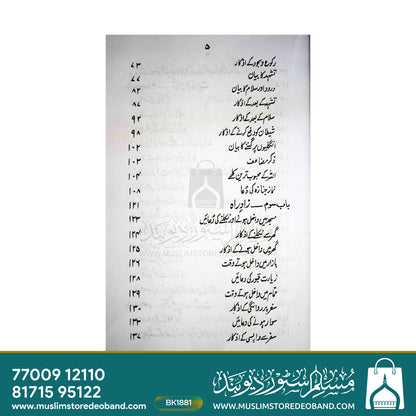 ۵
رکوع و سجود کے اذکار ۷۳
تشہد کا بیان ۷۷
درود اور سلام کا بیان ۸۲
تشہد کے بعد کے اذکار ۸۷
سلام کے بعد کے اذکار ۹۲
شیطان کو دفع کرنے کے اذکار ۹۸
انگلیوں پر گننے کا بیان ۱۰۲
ذکر مضاعف ۱۰۳
اللہ کے محبوب ترین کلمے ۱۰۴
نماز جنازہ کی دُعا ۱۰۸
باب سوم — زادِ راہ ۱۲۱
مسجد میں داخل ہونے اور نکلنے کی دُعائیں ۱۲۳
گھر سے نکلنے کے اذکار ۱۲۴
گھر میں داخل ہونے کے اذکار ۱۲۵
بازار میں داخل ہوتے وقت ۱۲۷
زیارت قبور کی دعائیں ۱۲۸
حمام میں داخل ہوتے وقت ۱۲۹
سفر پر روانگی کے اذکار ۱۳۰
سوار ہونے کی دعائیں ۱۳۲
سفر سے واپسی کے اذکار ۱۳۴
WWW.MUSLIMSTOREDEOBAND.COM
77009 12110
81715 95122
BK1881
www.muslimstoredeoband.com
مسلم اسٹور دیوبند
www.MUSLIMSTOREDEOBAND.COM